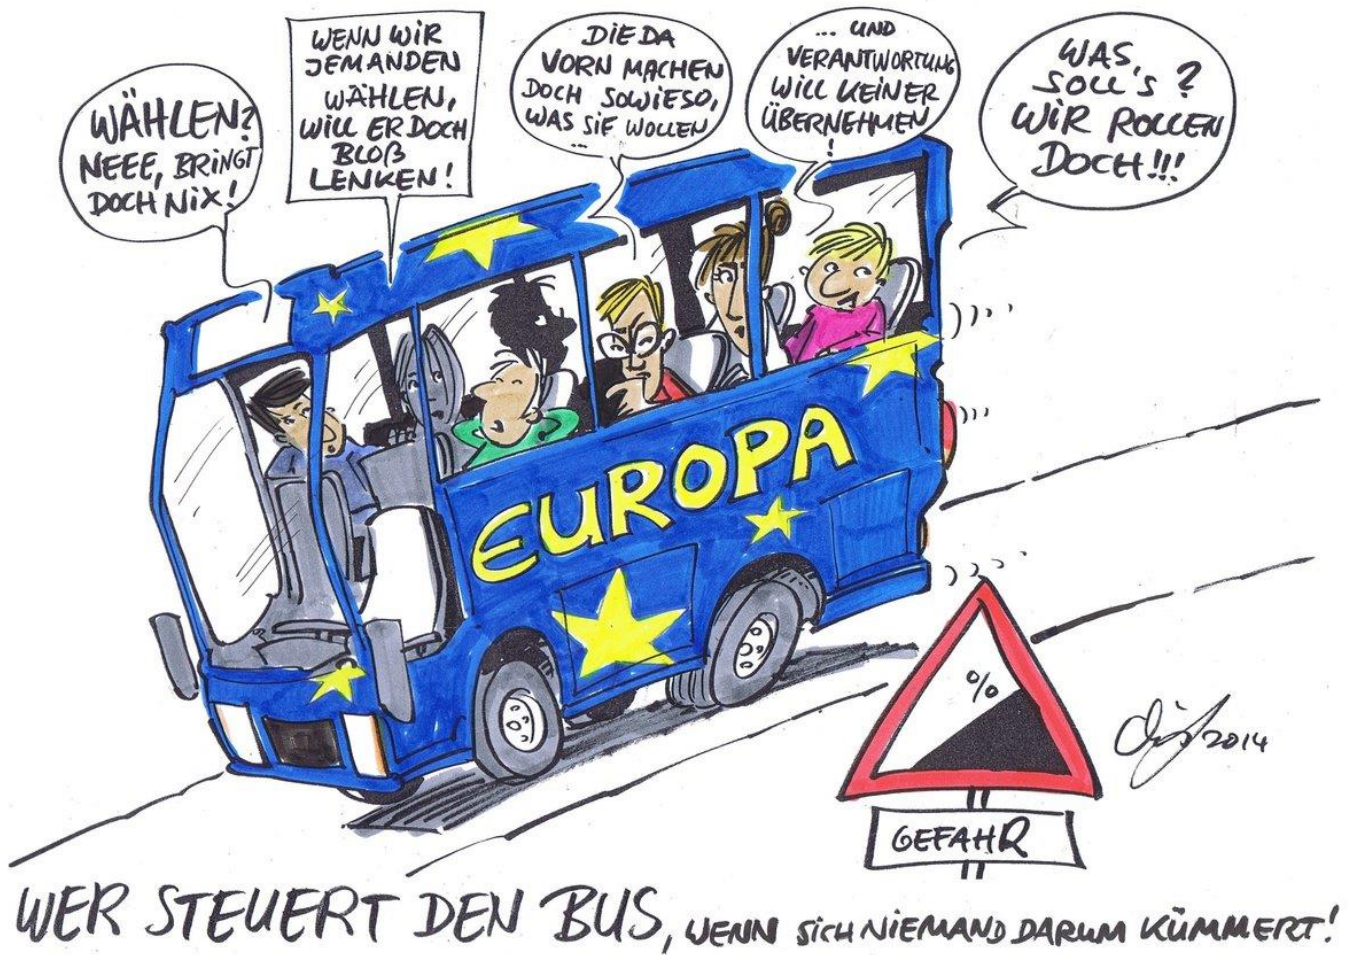 WÄHLEN?
NEEE, BRINGT
DOCH NIX!
WENN WIR
JEMANDEN
WÄHLEN,
WILL ER DOCH
BLOẞ
LENKEN!
DIE DA
VORN MACHEN
DOCH SOWIESO,
WAS SIE WOLLEN
...
... UND
VERANTWORTUNG
WILL KEINER
ÜBERNEHMEN
!
WAS
SOLL'S?
WIR ROLLEN
DOCH!!!
EUROPA
%
2014
GEFAHR
WER STEUERT DEN BUS, WENN SICH NIEMAND DARUM KÜMMERT!